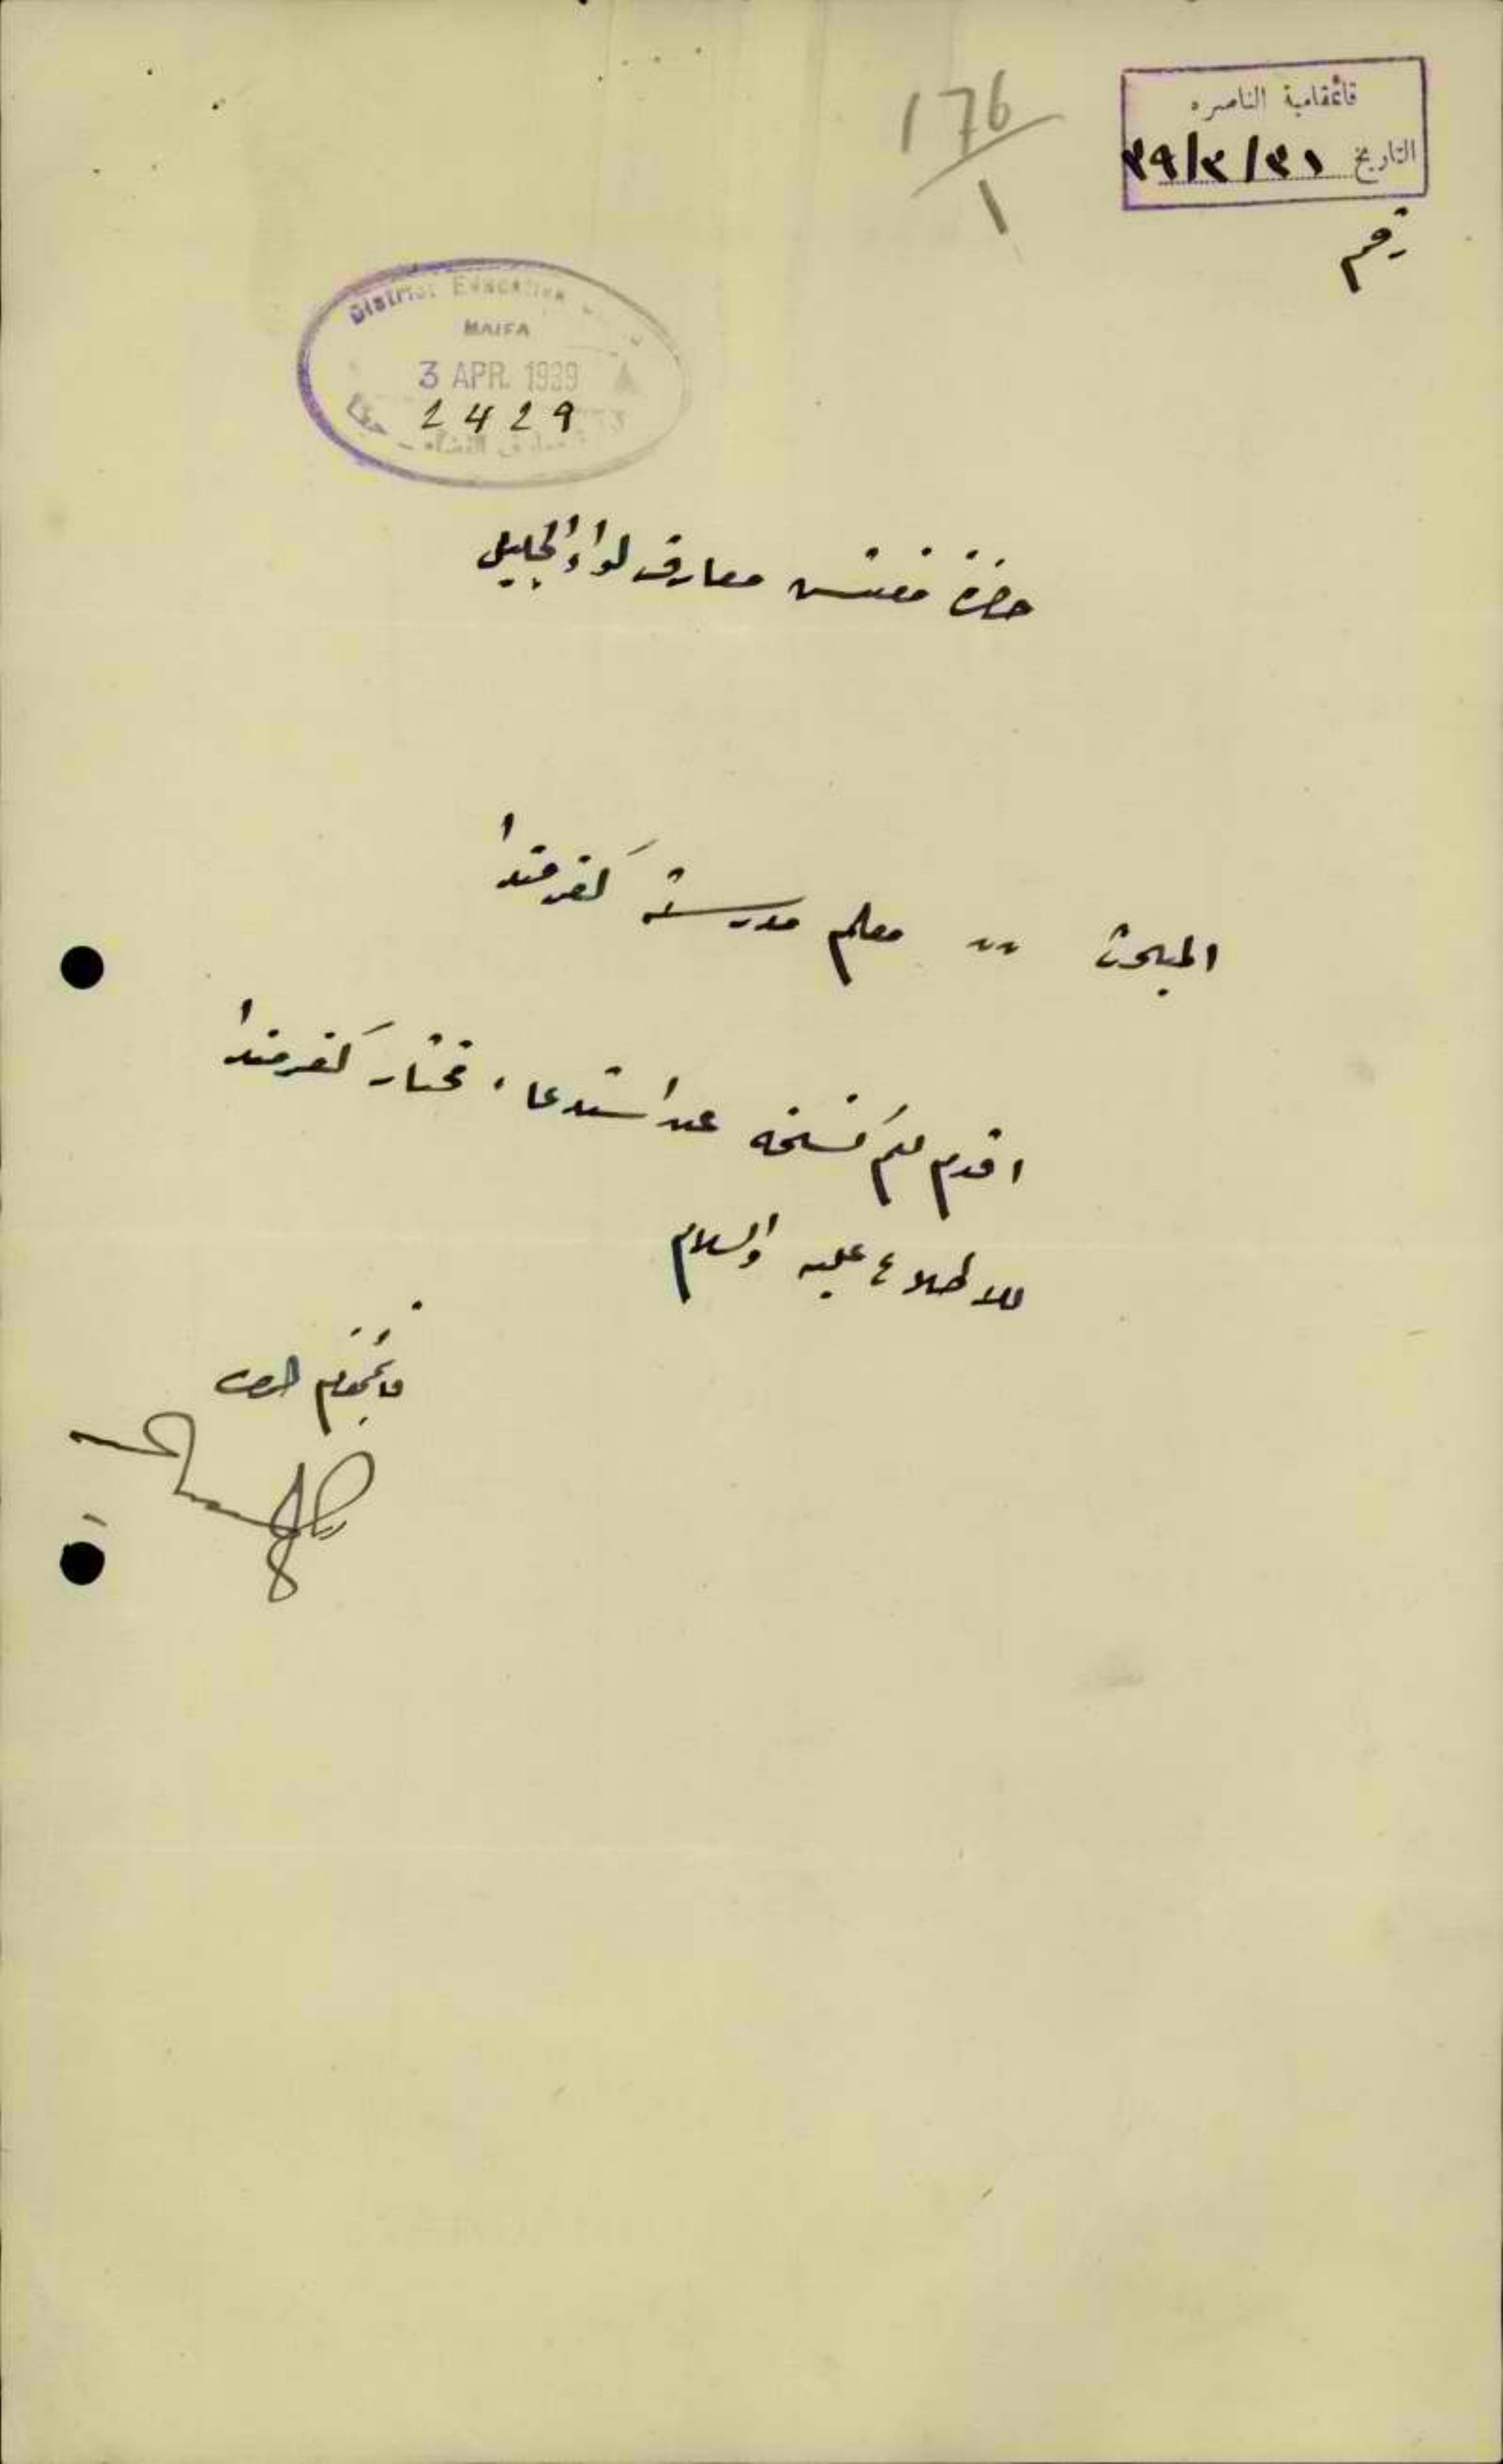 176
1
قائمقامية الناصره
التاريخ ٣١/٣/٣٩
رقم
District Education
HAIFA
3 APR. 1939
2429
حضرة مفتش معارف لواء الجليل
المبحوث معلم مدرسة كفرمندا
اقدم لكم نسخه عن استدعاء مختار كفرمندا
للاطلاع عليه والسلام
قائمقام